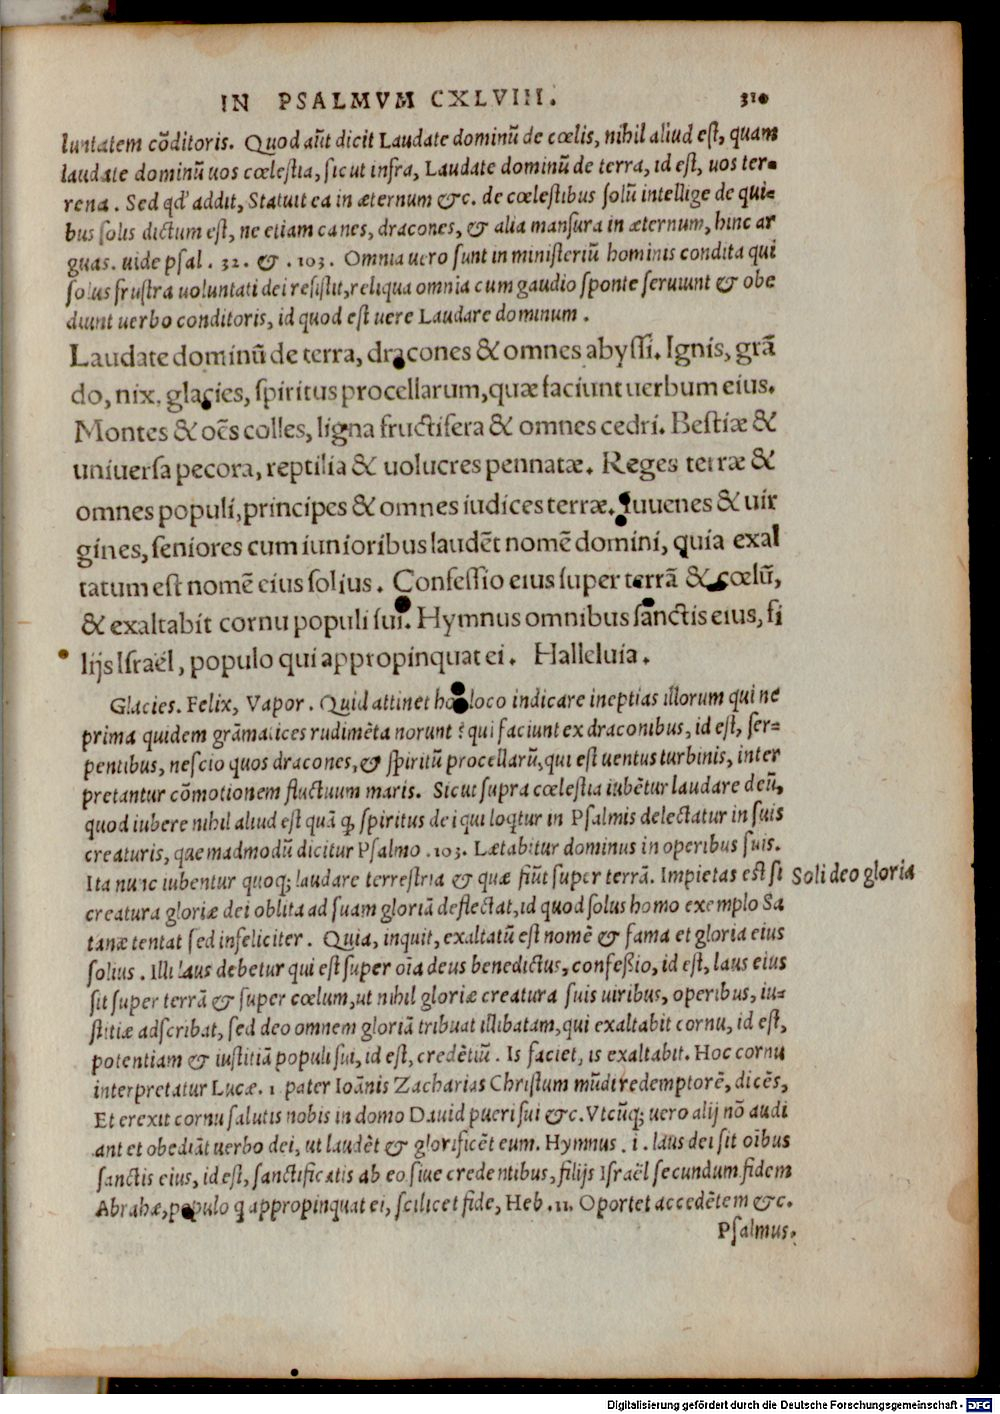 IN PSALMVM CXLVIII. 310
luntatem cõditoris. Quod aũt dicit Laudate dominũ de cœlis, nihil aliud est, quam
laudate dominũ uos cœlestia, sicut infra, Laudate dominũ de terra, id est, uos ter-
rena. Sed qđ addit, Statuit ea in æternum &c. de cœlestibus solũ intellige de qui-
bus solis dictum est, ne etiam canes, dracones, & alia mansura in æternum, hinc ar
guas. uide psal. 32. &. 103. Omnia uero sunt in ministeriũ hominis condita qui
solus frustra uoluntati dei resistit, reliqua omnia cum gaudio sponte seruiunt & obe
diunt uerbo conditoris, id quod est uere Laudare dominum.
Laudate dominũ de terra, dracones & omnes abyssi. Ignis, grã
do, nix, glacies, spiritus procellarum, quæ faciunt uerbum eius.
Montes & oẽs colles, ligna fructifera & omnes cedri. Bestiæ &
uniuersa pecora, reptilia & uolucres pennatæ. Reges terræ &
omnes populi, principes & omnes iudices terræ. Iuuenes & uir
gines, seniores cum iunioribus laudẽt nomẽ domini, quia exal
tatum est nomẽ eius solius. Confessio eius super terrã & cœlũ,
& exaltabit cornu populi sui. Hymnus omnibus sanctis eius, fi
lijs Israël, populo qui appropinquat ei. Halleluia.
Glacies. Felix, Vapor. Quid attinet hoc loco indicare ineptias illorum qui ne
prima quidem grãmatices rudimẽta norunt? qui faciunt ex draconibus, id est, ser-
pentibus, nescio quos dracones, & spiritũ procellarũ, qui est uentus turbinis, inter
pretantur cõmotionem fluctuum maris. Sicut supra cœlestia iubẽtur laudare deũ,
quod iubere nihil aliud est quã ꝙ spiritus dei qui loqͥtur in Psalmis delectatur in suis
creaturis, quemadmodũ dicitur Psalmo .103. Lætabitur dominus in operibus suis.
Ita nunc iubentur quoqꝫ laudare terrestria & quæ fiũt super terrã. Impietas est si
Soli deo gloria
creatura gloriæ dei oblita ad suam gloriã deflectat, id quod solus homo exemplo Sa
tanæ tentat sed infeliciter. Quia, inquit, exaltatũ est nomẽ & fama et gloria eius
solius. Illi laus debetur qui est super oĩa deus benedictus, confeßio, id est, laus eius
sit super terrã & super cœlum, ut nihil gloriæ creatura suis uiribus, operibus, iu-
stitiæ adscribat, sed deo omnem gloriã tribuat illibatam, qui exaltabit cornu, id est,
potentiam & iustitiã populi sui, id est, credẽtiũ. Is faciet, is exaltabit. Hoc cornu
interpretatur Lucæ. 1 pater Ioãnis Zacharias Christum mũdi redemptorẽ, dicẽs,
Et erexit cornu salutis nobis in domo Dauid pueri sui &c. Vtcũqꝫ uero alij nõ audi
ant et obediãt uerbo dei, ut laudẽt & glorificẽt eum. Hymnus .i. laus dei sit oĩbus
sanctis eius, id est, sanctificatis ab eo siue credentibus, filijs Israël secundum fidem
Abrahæ, populo ꝗ appropinquat ei, scilicet fide, Heb .11. Oportet accedẽtem &c.
Psalmus.
Digitalisierung gefördert durch die Deutsche Forschungsgemeinschaft - DFG